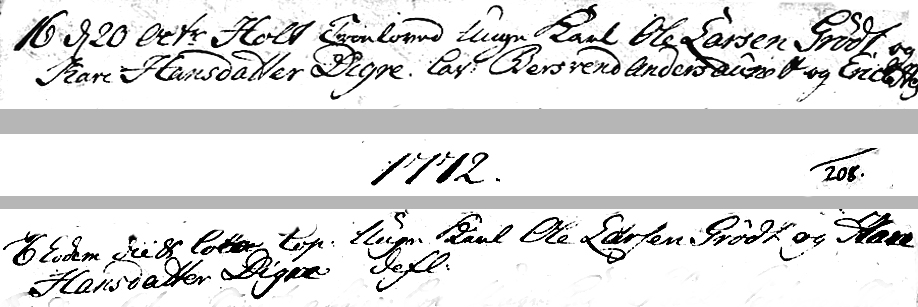 16 d 20 Octr Holt Trovloved Ungr Karl Ole Larsen Grödt og
Kari Hansdatter Digre. Cav: Bersvend Anders og Erich
1772. 208.
Eodem Ungr Karl Ole Larsen Grödt og Kari
Hansdatter Digre defl: